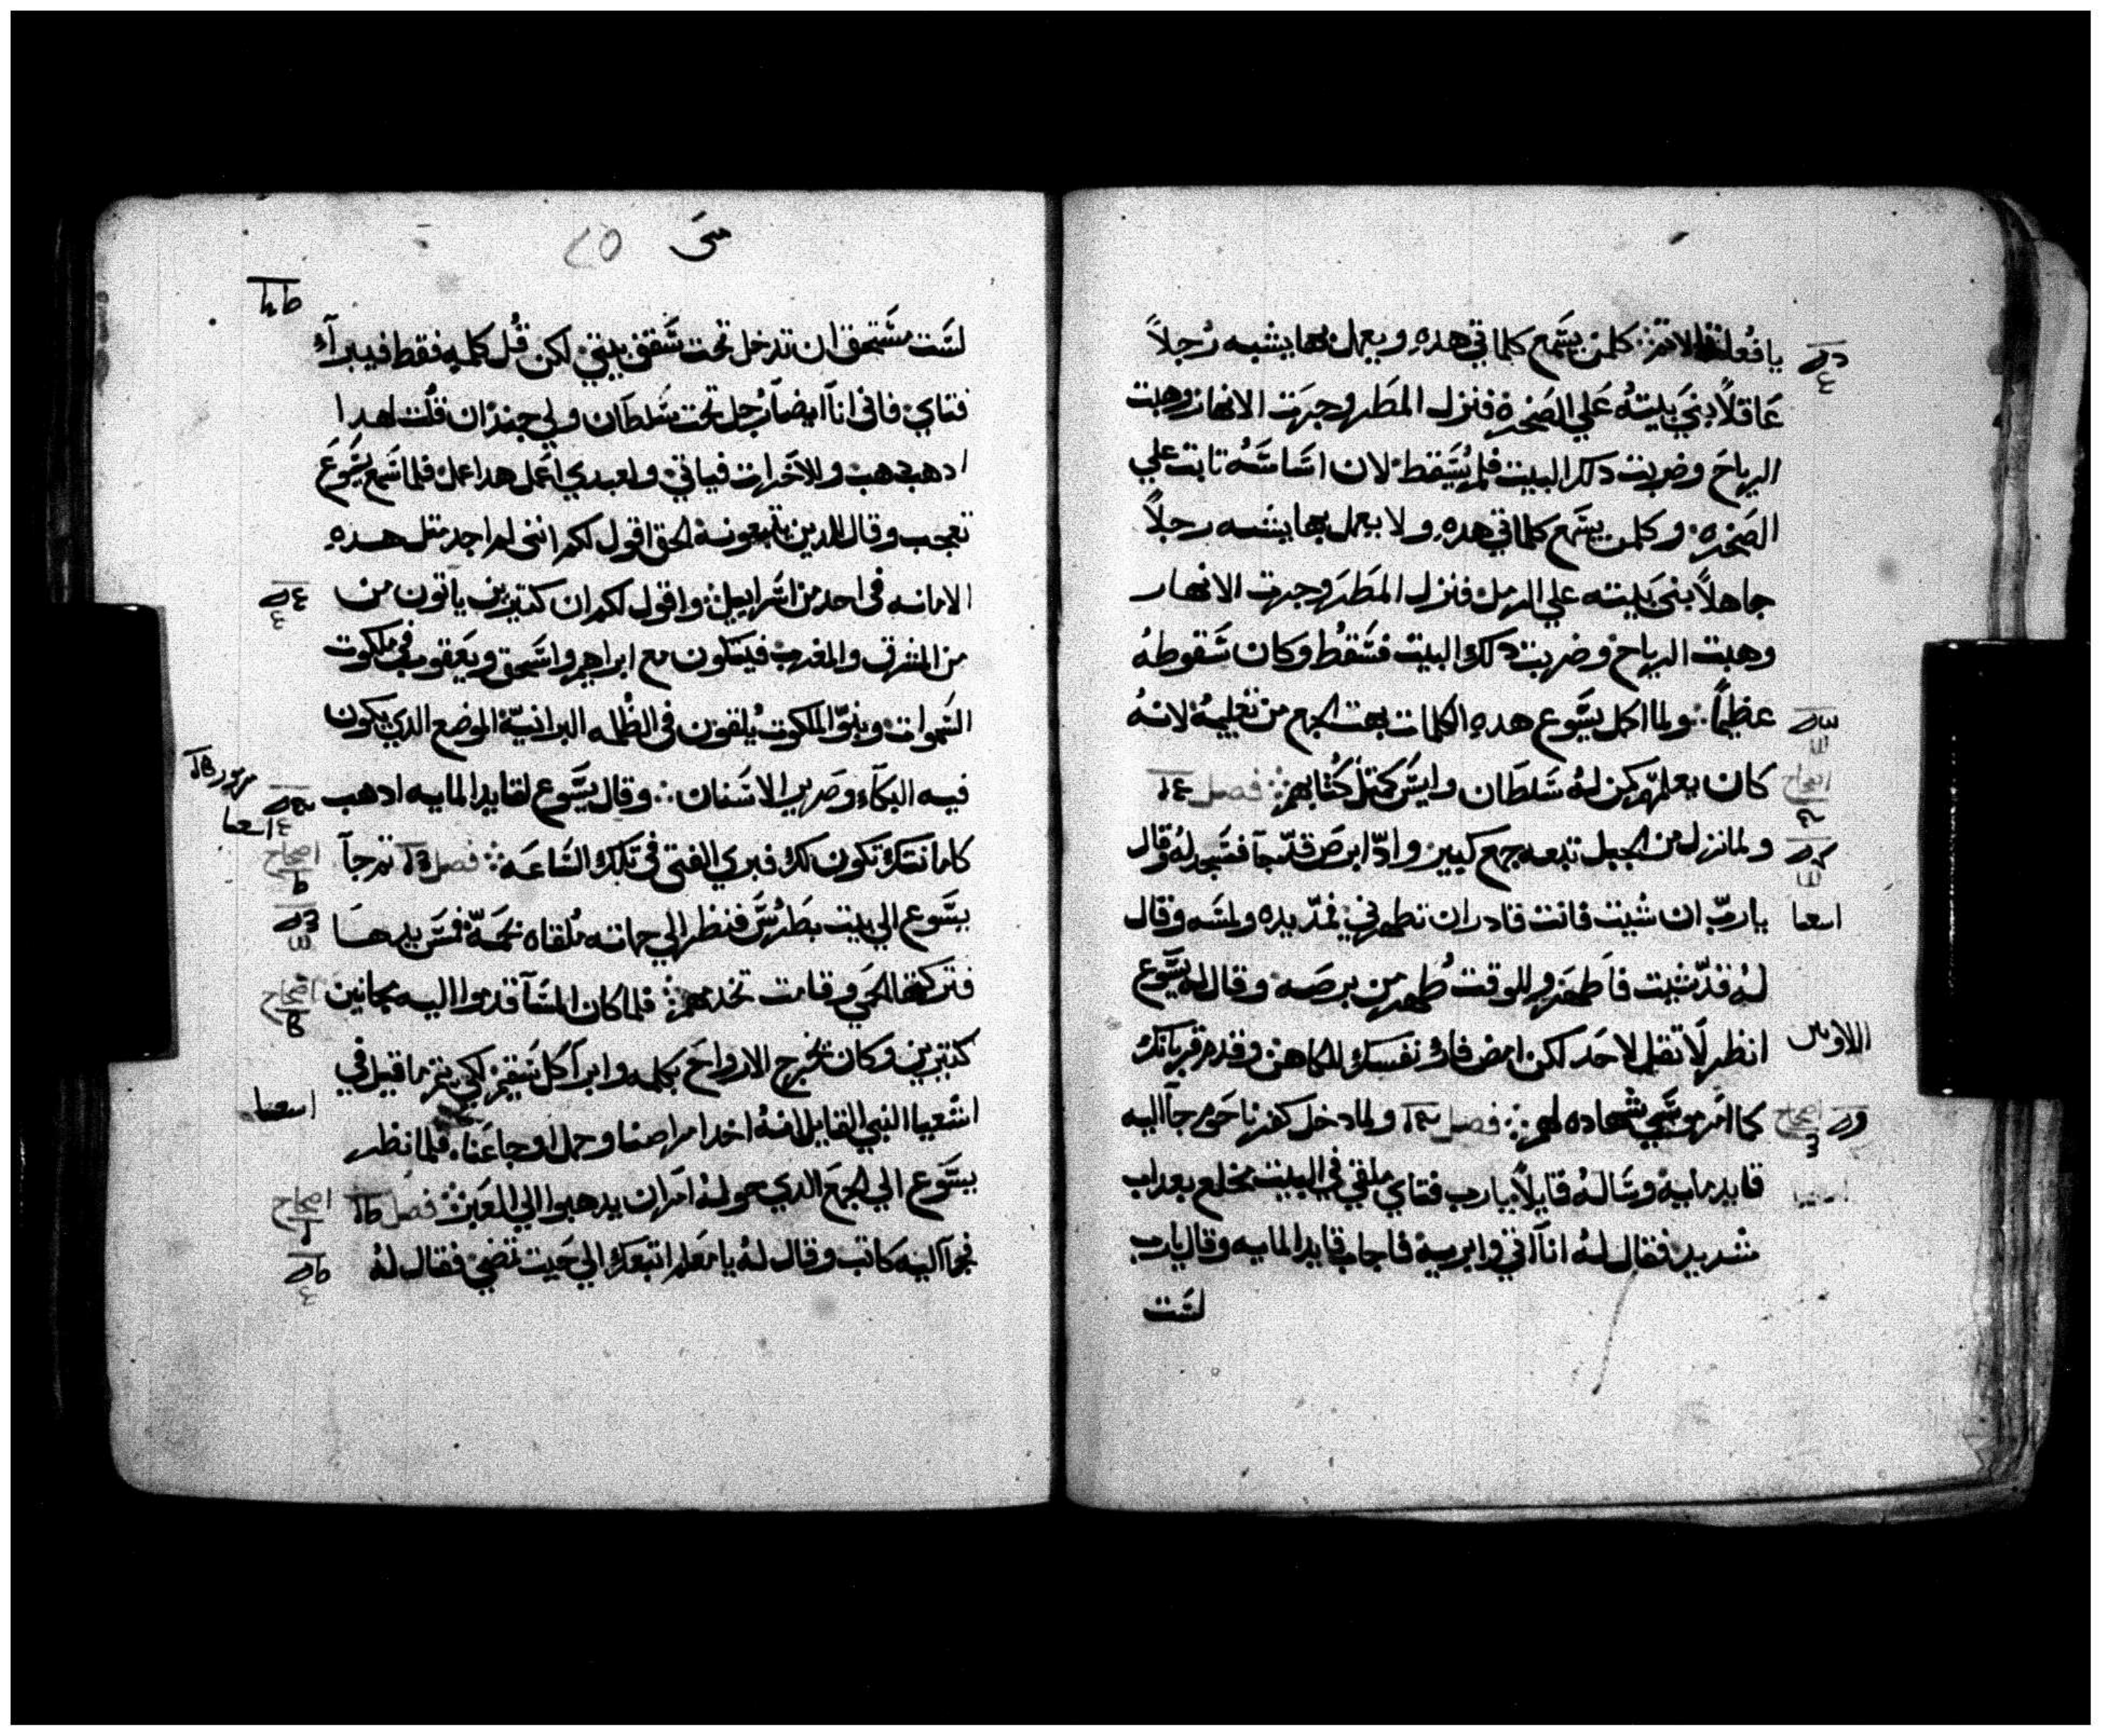 يا فعلة الاثم ∴ كلمن يسَمع كلماتي هدهِ ويعمل بها يشبه رُجلاً
عَاقلاً بنيَ بيتهُ عَلي الصَخره فنزل المطَر وجرَت الانهار وهبت
الرياحَ وضربت دلك البيت فلم يُسَقط لان اسَاسَهُ تابت علي
الصَخره وكلمن يسَمع كلماتي هدهِ ولا يعمل بها يشبه رجلاً
جاهلاً بنىَ بَيته علي الرمل فنزل المَطَر وجرت الانهار
وهبت الرياح وضربت دلك البيت فسَقطُ وكان سَقوطهُ
عظيماً ∴ ولما اكمل يسَوع هدهِ الكلمات بهت الجمع من تعليمهُ لانهُ
كان يعلمّهم كمن لهُ سَلطَان وليسَ كمتل كُتابهم ∴ فصل
ولما نزل من الجبل تبعه جمع كبير وادّا ابرصَ قدّ جآ فسَجد لهُ وقال
يا ربّ ان شيت فانت قادر ان تطهرني فمدّ يده ولمسَه وقال
لهُ قدّ شيت فاَطهر وللوقت طُهر من برصَه وقال له يسَوع
انظر لَا تقل لاحَد لكن امض فار نفسَك للكاهن وقدم قربانك
كما امَر موسَي شهاده لهم ∴ فصل ولما دخل كفرناحَوم جآ اليه
قايد مايه وسَالهُ قايلاً يا رب فتاي ملقي في البيت مخلع بعداب
شديد فقال لهُ اناآتي وابريه فاجاب قايد المايه وقال يا رب
لسَت
اسعيا
متىَ
٢٥
لسَت مسَتحق ان تدخل تحت سَقف بيتي لكن قُل كلمه فقط فيبرآء
فتاي فاني اناَ ايضاً رَجل تحت سَلطاَن ولي جند ان قلت لهدا
ادهب دهب وللاخَر ات فياتي ولعبدي اعَمل هدا عمل فلما سَمع يسَوعَ
تعجب وقال للدين يتبعونه الحق اقول لكم انني لم اجد متل هدهِ
الامانه في احد من اسَراييل ∴ واقول لكم ان كتيرين ياتون من
من المشرق والمغرب فيتكون مع ابراهيم واسَحق ويعَقوب في ملكوت
السَموات وبنوّ الملكوت يُلقون في الظلمه البرانيّة الموضع الدي يكون
فيه البكآء وصَرير الاسَنان ∴ وقال يسَوع لقايد المايه ادهب
كامانتك تكون لك فبري الفتي في تلك السَاعَه ∴ فصل تم جآ
يسَوع الي بيت بطَرُسَ فنظر الي حماته مُلقاه بحمَيّ فمسَ يدهَا
فتركتها الحمَي وقامت تخدمهم ∴ فلما كان المسَآ قدموا اليه مجانين
كتيرين وكان يخرج الارواحَ بكلمه وابرآ كل سَقيم لكي يتم ما قيل في
اشَعيا النبي القايل انهُ اخد امراضنا وحمل اوجاعَنا، فلما نظر
يسَوع الي الجمعَ الدي حولهُ امَر ان يدهبوا الي العَبر ∴ فصل
فجآ اليه كاتب وقال لهُ يا معَلم اتبعَك الي حَيت تمضي فقال لهُ
اصحاح
اصحاح
اسعيا
اصحاح